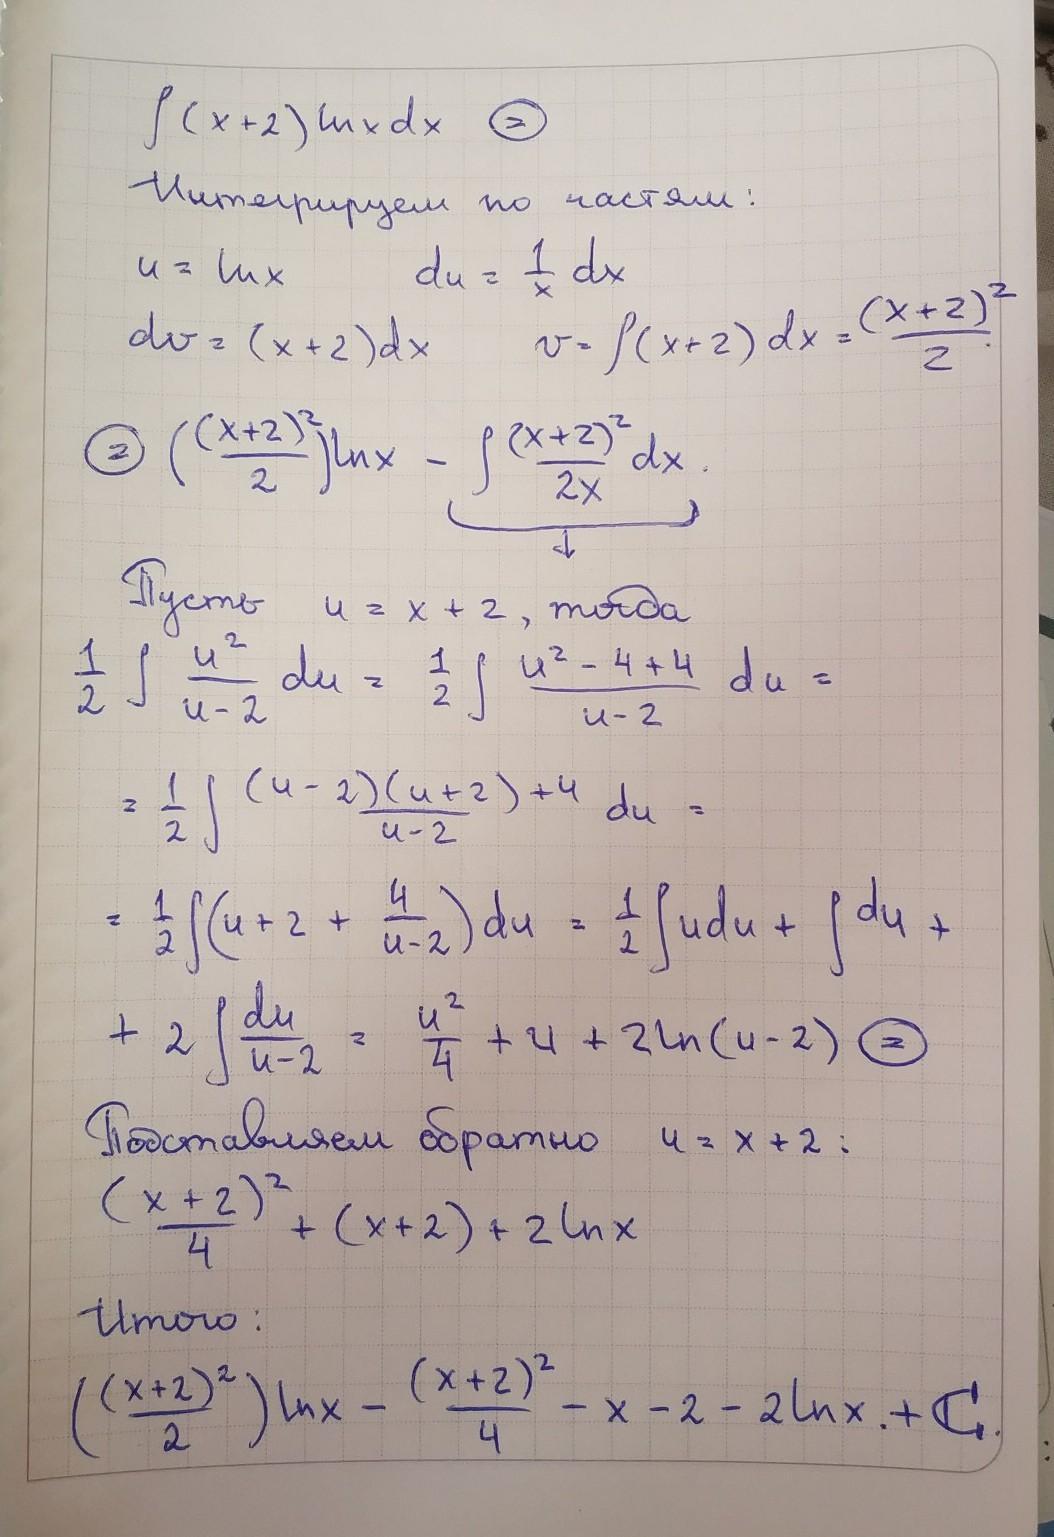 ∫(x+2)lnxdx ⊜
Интегрируем по частям:
u = lnx du = 1/x dx
dv = (x+2)dx v = ∫(x+2)dx = (x+2)²/2
⊜ ((x+2)²/2)lnx - ∫(x+2)²/2x dx.
↓
Пусть u = x+2, тогда
1/2 ∫ u²/(u-2) du = 1/2 ∫ (u²-4+4)/(u-2) du =
= 1/2 ∫ ((u-2)(u+2)+4)/(u-2) du =
= 1/2 ∫(u+2+4/(u-2))du = 1/2 ∫udu + ∫du +
+ 2∫du/(u-2) = u²/4 + u + 2ln(u-2) ⊜
Подставляем обратно u = x+2:
(x+2)²/4 + (x+2) + 2lnx
Итого:
((x+2)²/2)lnx - (x+2)²/4 - x - 2 - 2lnx. + C.